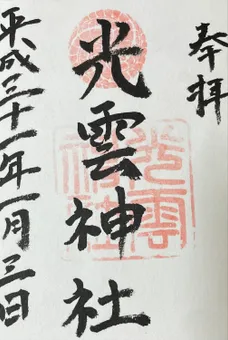 奉拝
光雲神社
平成三十一年一月三日
光雲神社